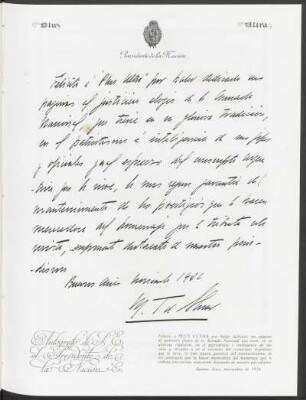 Plus
Ultra
Presidente de la Nación
Felicito á "Plus Ultra" por haber dedicado sus
páginas al justiciero elogio de la Armada
Nacional, que tiene en su gloriosa tradición,
en el patriotismo é inteligencia de sus jefes
y oficiales y en el esfuerzo del conscripto argen
tino que la sirve, la más segura garantía del
mantenimiento de los prestigios que la hacen
merecedora del homenaje que le tributa esta
revista, exponente de nuestro perio-
dismo
Buenos Aires Noviembre 1926
M. T. de Alvear
Autógrafo de S. E.
el Presidente de
la Nación
Felicito a PLUS ULTRA por haber dedicado sus páginas
al justiciero elogio de la Armada Nacional que tiene, en su
gloriosa tradición, en el patriotismo e inteligencia de sus
jefes y oficiales y en el esfuerzo del conscripto argentino
que la sirve, la más segura garantía del mantenimiento de
los prestigios que la hacen merecedora del homenaje que le
tributa esta revista, exponente de nuestro periodismo.
Buenos Aires, noviembre de 1926.